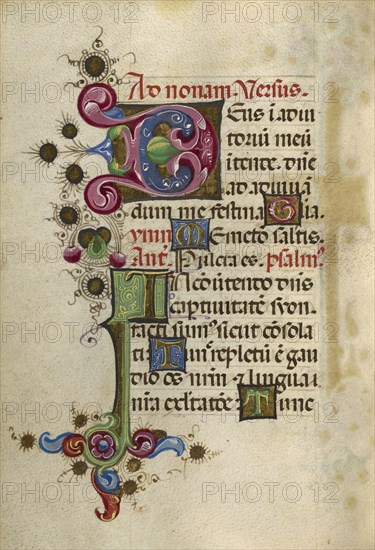 Ad nonam. Versus.
Deus i adiu
toriū meū
ītende. Dñe
ad adiuuā
dum me festina Glīa.
ymn̄ Memēto salutis.
Ant. Pulcra es. psalm⁹
In cōuertendo dñs
captiuitatē syon
facti sum⁹ sicut cōsola
ti Tunc repletū ē gau
dio os nrm̄ & lingua
nr̄a exultatōe Tunc